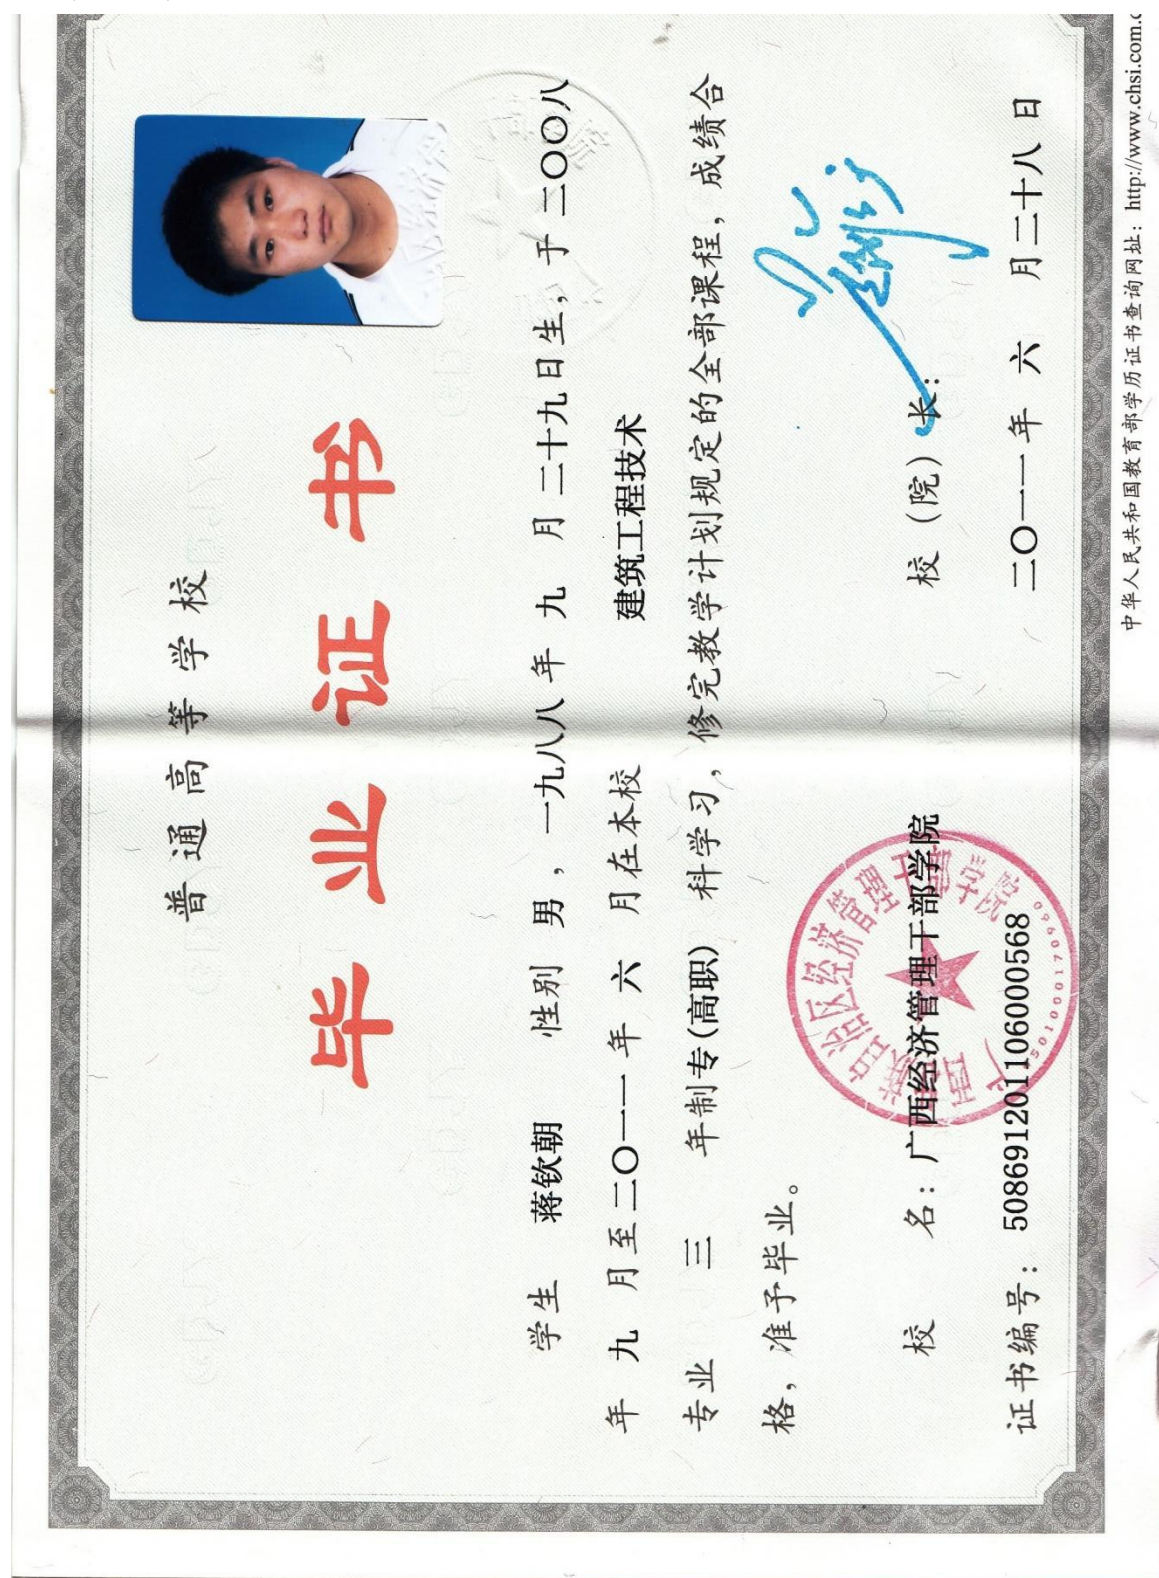 普通高等学校
毕业证书
学生 蒋钦朝 性别 男，一九八八年 九 月二十九日生，于二〇〇八
年 九 月至二〇一一年 六 月在本校 建筑工程技术
专业 三 年制专(高职) 科学习，修完教学计划规定的全部课程，成绩合
格，准予毕业。
校 名：广西经济管理干部学院 校（院）长：
证书编号：508691201106000568 二〇一一年 六 月二十八日
中华人民共和国教育部学历证书查询网址：http://www.chsi.com.c